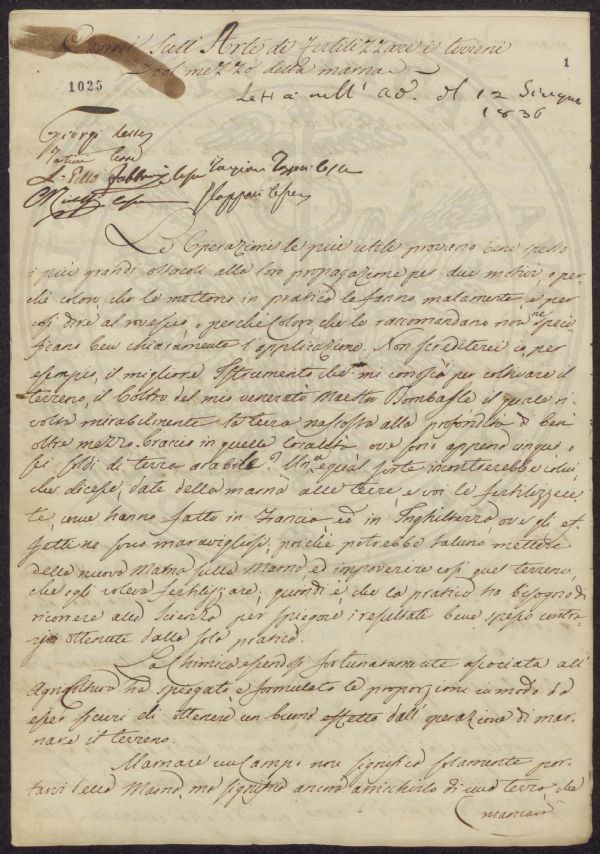 Cenni sull'Arte di Fertilizzare i terreni
col mezzo della marna
1
1025
Letta nell' ad. del 12 Giugno
1836
Giorgi
Le Operazione le più utile provano bene spesso
i più grandi ostacoli alla loro propagazione per due motivi, o per
chè coloro, che le mettono in pratica le fanno malamente, e per
così dire al rovescio, o perchè coloro, che le raccomandano non ne speci
ficano ben chiaramente l'applicazione. Non screditerei io, per
esempio, il migliore Istrumento che mi conosca per coltivare il
terreno, il Coltro del mio venerato Maestro Dombasle il quale ri
volta mirabilmente la terra nascosta alla profondità di ben
oltre mezzo braccio in quelle località ove sono appena cinque, o
sei soldi di terra arabile? Una egual sorte incontrerebbe colui,
che dicesse, date della marna alle terre e voi le fertilizzere
te, come hanno fatto in Francia, ed in Inghilterra ove gli ef
fetti ne sono maravigliosi, poichè potrebbe taluno mettere
della nuova Marna sulla Marna ed impoverire così quel terreno,
che egli voleva fertilizzare; quindi è che la pratica ha bisogno di
ricorrere alla Scienza per spiegare i resultati bene spesso contra
rj ottenute dalla sola pratica.
La Chimica essendosi fortunatamente associata all'
Agricoltura ha spiegato e formulato le proporzioni in modo da
esser sicuri di ottenere un buono effetto dall'operazione di mar-
nare il terreno.
Marnare un Campo non significa solamente por-
tarvi della Marna, ma significa ancora arricchirlo di una terra, che